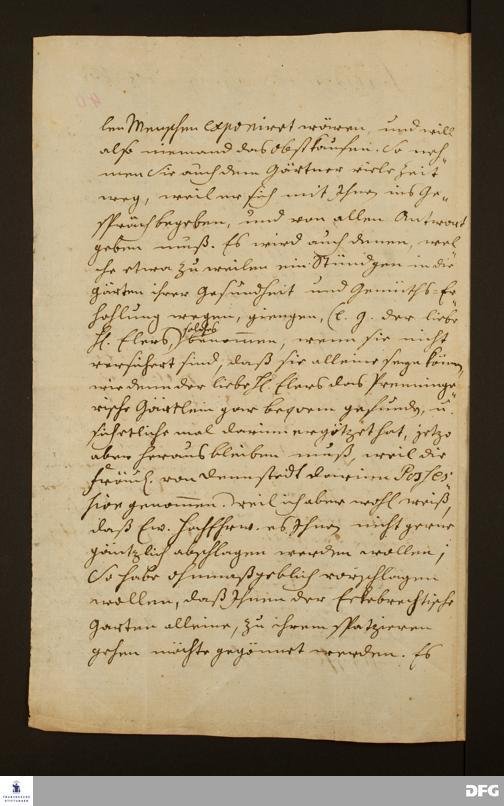 len Menschen exponiret wären, und will
also niemand das Obst kaufen. So neh=
men Sie auch dem Gärtner viele Zeit
weg, weil er sich mit Ihnen ins Ge=
spräch begeben, und von allen Antwort
geben muß. Es wird auch denen, wel
che etwa zu weilen ein Stündgen in die
Gärten ihrer Gesundheit und Gemüths=Er
hohlung wegen, giengen, (e. g. der liebe
H. Elers,) solches benommen, wenn sie nicht
versichert sind, daß sie alleine seyn können,
wie denn der liebe H. Elers das
rische Gärtlein gar beqvem gefunden, u.
sich etliche mal darinn ergötzet hat, jetzo
aber heraus bleiben muß, weil die
Fräul. von Dennstedt darinn Posses=
sion genommen. Weil ich aber wohl weiß,
daß Ew. es Ihnen nicht gerne
gäntzlich abschlagen werden wollen;
So habe ohnmaßgeblich vorschlagen
wollen, daß Ihnen der Eckebrechtische
Garten alleine, zu ihrem spatzieren
gehen möchte gegönnet werden. Es
FRANCKESCHE
STIFTUNGEN
DFG